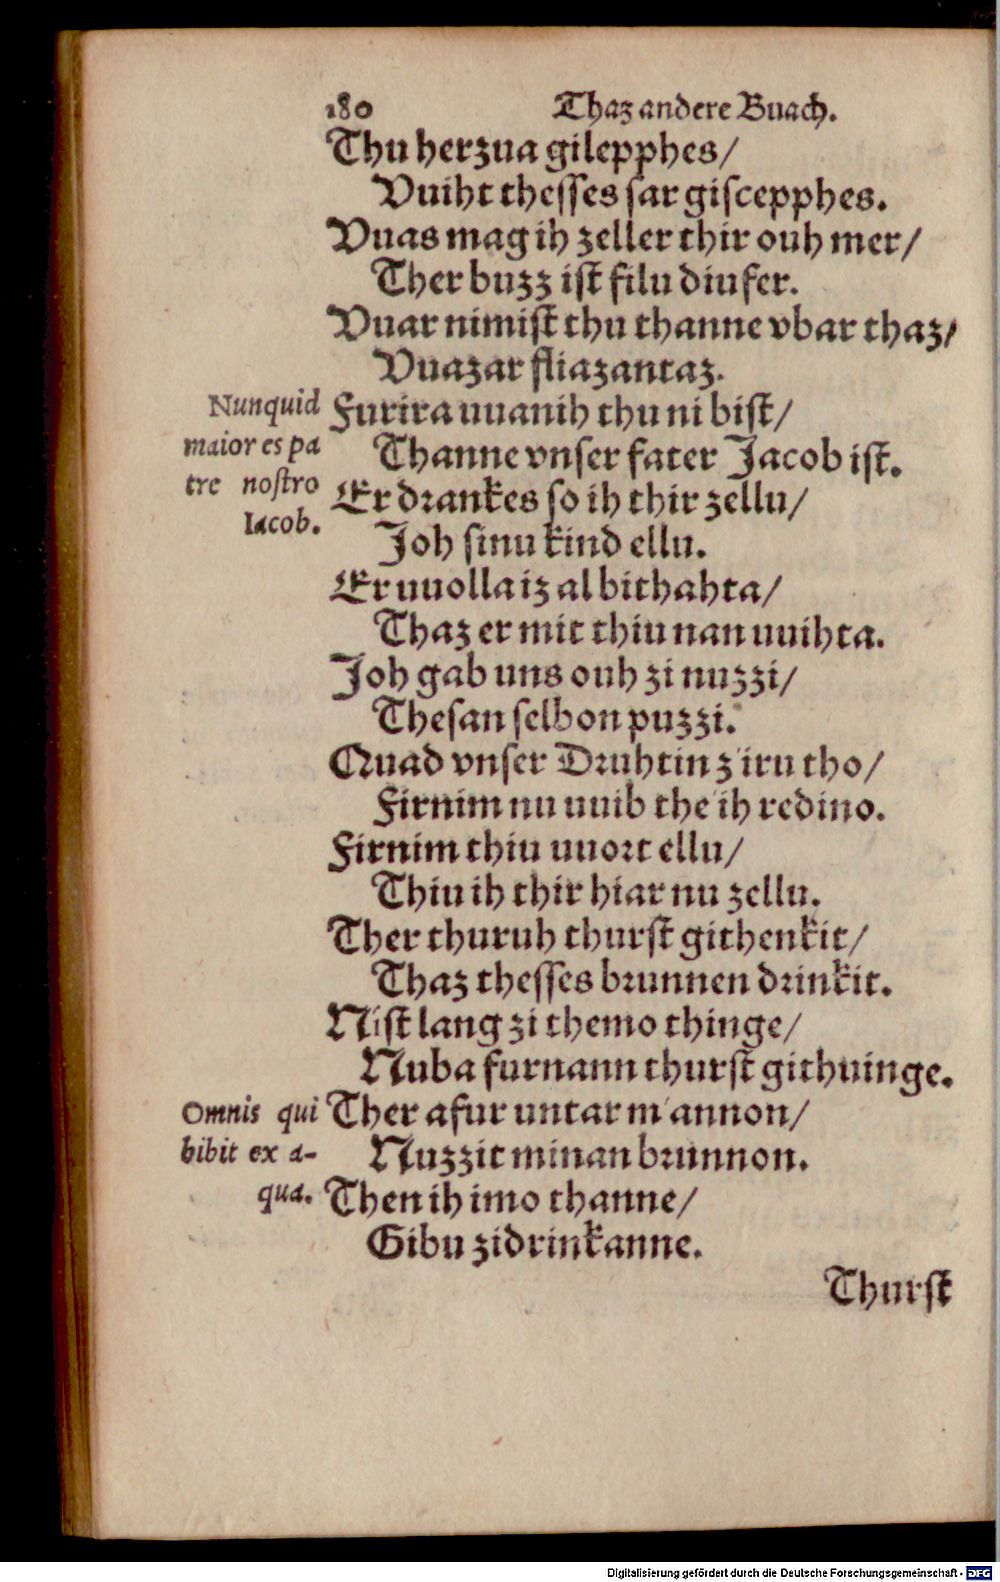 180 Thaz andere Buach.
Thu herzua gilepphes/
Vuiht thesses sar giscepphes.
Vuas mag ih zeller thir ouh mer/
Ther buzz ist filu diufer.
Vuar nimist thu thanne vbar thaz/
Vuazar fliazantaz.
Nunquid
maior es pa
tre nostro
Iacob.
Furira uuanih thu ni bist/
Thanne vnser fater Jacob ist.
Er drankes so ih thir zellu/
Joh sinu kind ellu.
Er uuolla iz al bithahta/
Thaz er mit thiu nan uuihta.
Joh gab uns ouh zi nuzzi/
Thesan selbon puzzi.
Quad vnser Druhtin z'iru tho/
Firnim nu uuib the ih redino.
Firnim thiu uuort ellu/
Thiu ih thir hiar nu zellu.
Ther thuruh thurst githenkit/
Thaz thesses brunnen drinkit.
Nist lang zi themo thinge/
Nuba furnann thurst githuinge.
Omnis qui
bibit ex a-
qua.
Ther afur untar m'annon/
Nuzzit minan brunnon.
Then ih imo thanne/
Gibu zidrinkanne.
Thurst
Digitalisierung gefördert durch die Deutsche Forschungsgemeinschaft - DFG